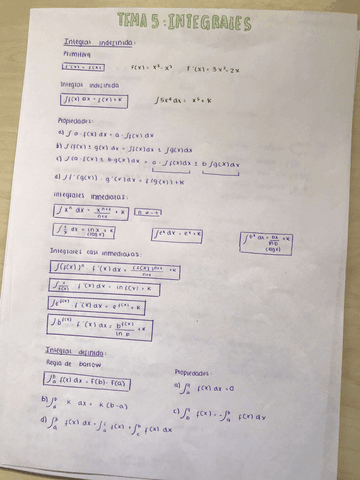 TEMA 5: INTEGRALES
Integral indefinida:
Primitiva
F'(x) = f(x) F(x) = x³ - x² F'(x) = 3x² - 2x
Integral indefinida
∫f(x) dx = F(x) + K ∫5x⁴dx = x⁵ + K
Propiedades:
a) ∫a · f(x) dx = a · ∫f(x) dx
b) ∫f(x) ± g(x) dx = ∫f(x)dx ± ∫g(x)dx
c) ∫(a · f(x) ± b·g(x) dx = a · ∫f(x)dx ± b ∫g(x)dx
d) ∫f'(g(x)) · g'(x) dx = f(g(x)) + K
Integrales inmediatas:
∫xⁿ dx = xⁿ⁺¹/n+1 + K n ≠ -1
∫1/x dx = ln x + K ∫eˣ dx = eˣ + K ∫bˣ dx = bx/ln b + K
Integrales casi inmediatas:
∫(f(x))ⁿ · f'(x) dx = (f(x))ⁿ⁺¹/n+1 + K
f'(x) dx = ln f(x) + K
f'(x) dx = e^f(x) + K
∫b^f(x) · f'(x) dx = b^f(x)/ln b + K
Integral definida:
Regla de barrow
∫ₐᵇ f(x) dx = F(b) - F(a)
b) ∫ₐᵇ K dx = K (b-a)
Propiedades:
a) ∫ₐᵃ f(x) dx = 0
c) ∫ₐᵇ f(x) = -∫ f(x) dx
d) ∫ₐᵇ f(x) dx = ∫ₐᶜ f(x) + ∫꜀ᵇ f(x) dx